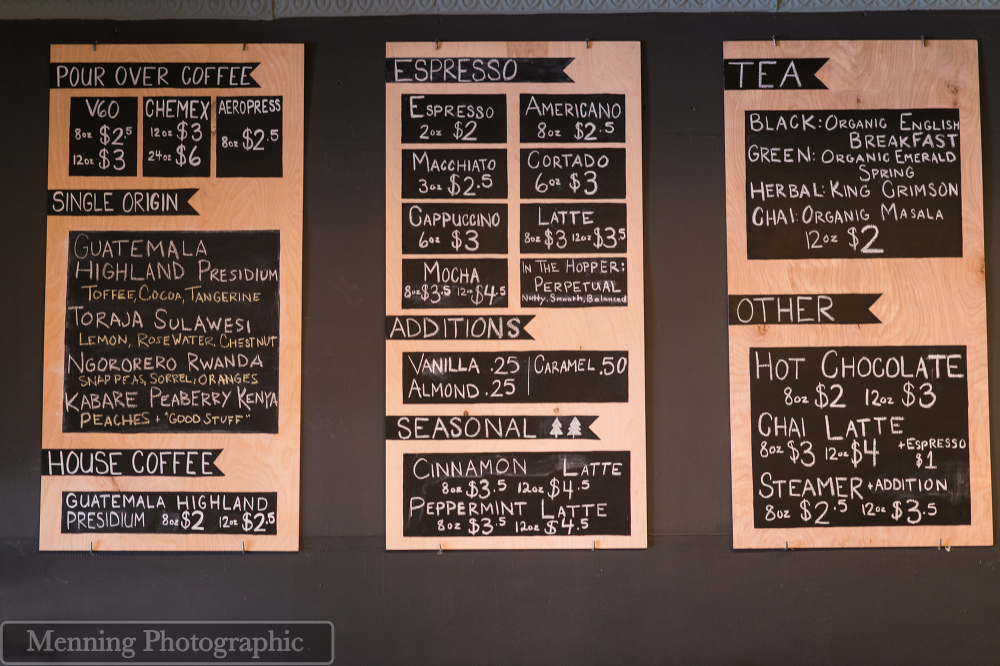 POUR OVER COFFEE
V60
8oz $2.5
12oz $3
CHEMEX
12oz $3
24oz $6
AEROPRESS
8oz $2.5
SINGLE ORIGIN
GUATEMALA
HIGHLAND PRESIDIUM
TOFFEE, COCOA, TANGERINE
TORAJA SULAWESI
LEMON, ROSEWATER, CHESTNUT
NGORORERO RWANDA
SNAP PEAS, SORREL, ORANGES
KABARE PEABERRY KENYA
PEACHES + "GOOD STUFF"
HOUSE COFFEE
GUATEMALA HIGHLAND
PRESIDIUM 8oz $2 12oz $2.5
ESPRESSO
ESPRESSO
2oz $2
AMERICANO
8oz $2.5
MACCHIATO
3oz $2.5
CORTADO
6oz $3
CAPPUCCINO
6oz $3
LATTE
8oz $3 12oz $3.5
MOCHA
8oz $3.5 12oz $4.5
IN THE HOPPER:
PERPETUAL
Nutty, Smooth, Balanced
ADDITIONS
VANILLA .25
ALMOND .25
CARAMEL .50
SEASONAL
CINNAMON LATTE
8oz $3.5 12oz $4.5
PEPPERMINT LATTE
8oz $3.5 12oz $4.5
TEA
BLACK: ORGANIC ENGLISH
BREAKFAST
GREEN: ORGANIC EMERALD
SPRING
HERBAL: KING CRIMSON
CHAI: ORGANIC MASALA
12oz $2
OTHER
HOT CHOCOLATE
8oz $2 12oz $3
CHAI LATTE
8oz $3 12oz $4
+ESPRESSO
$1
STEAMER +ADDITION
8oz $2.5 12oz $3.5
Menning Photographic